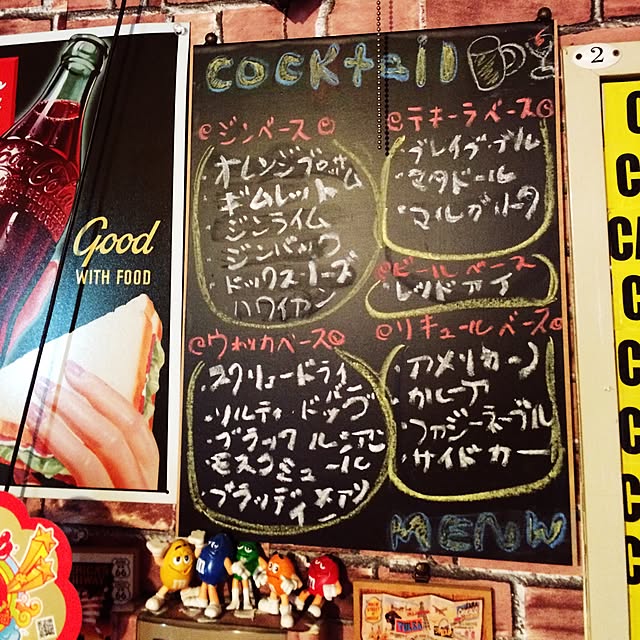 cocktail
ジンベース
・オレンジブロッサム
・ギムレット
・ジンライム
・ジンバック
・ドックスノーズ
・ハワイアン
ウォッカベース
・スクリュードライバー
・ソルティ ドッグ
・ブラック ルシアン
・モスコミュール
・ブラッディ メアリ
テキーラベース
・ブレイブ・ブル
・マタドール
・マルガリータ
ビール ベース
・レッド アイ
リキュールベース
・アメリカーノ
・カルーア
・ファジーネーブル
・サイドカー
MENU
Good
WITH FOOD
2